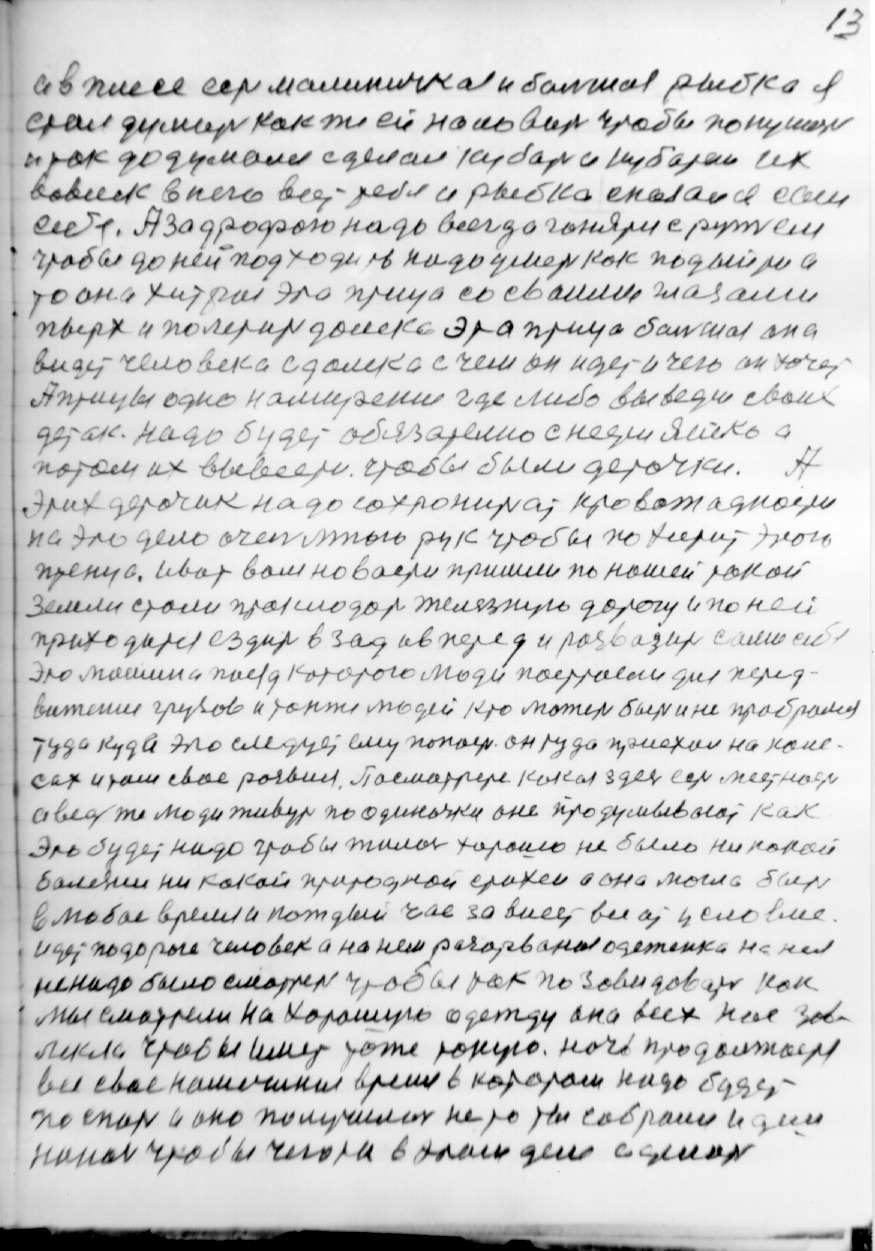 13
а в плесе есть малинична и болшая рыбка я
стал думать как же ей наловить чтобы покушать
и так додумался сделал кубарь и кубарем их
вовлек в него вот тебе и рыбка спаялася сама
себе. А за дрофою надо всегда гоняти с ружем
чтобы до ней подходить надо умет как подыйти а
то она хитрая эта птица со своими глазами
пверх и полетит далека эта птица болшая она
видет человека с далека с чем он идет и чего он хочет
А птицы одно намирение где либо выведти своих
деток. надо будет обязателно снести яйко а
потом их вывести. чтобы были деточки. А
этих деточик надо сохронит от кровожадности
на это дело очен много рук чтобы похитит этого
птенца. И вот вам новости пришли по нашей такой
Земли стали прокладат железную дорогу и по ней
приходится ездит в зад и в перед и развозит сами себя
Это машина поезд которого люди построели для перед-
вижение грузов и также людей кто может быт и не пробрался
туда куда это следует ему попаст. он туда приехал на коле-
сах и там свое розвил. Посмотрете какая здес ест местност
а вед же люди живут по одиночки оне продумывают как
Это будет надо чтобы жилос хорошо не было ни какой
болезни ни какой природной стихеи а она могла быт
в любое время и каждый час зависет все от условие.
идет по дороге человек а на нем разорваная одеженка на нея
ненадо было смотреть чтобы так позавидоват как
мы смотрели на хорошую одежду она всех нас зав-
лекла чтобы имет тоже такую. ночь продолжается
все свое намеченая время в котором надо будет
поспат и оно получилос не то ты собрался идти
начат чтобы чегота в этом деле сделат